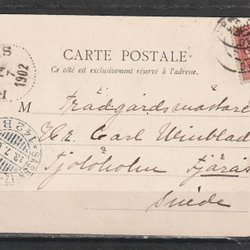 CARTE POSTALE
Ce côté est exclusivement réservé à l'adresse.
7
1902
M Trädgårdsmästare
Hr Carl Weinblad
Tjolöholm Fjärås
Suède
142B